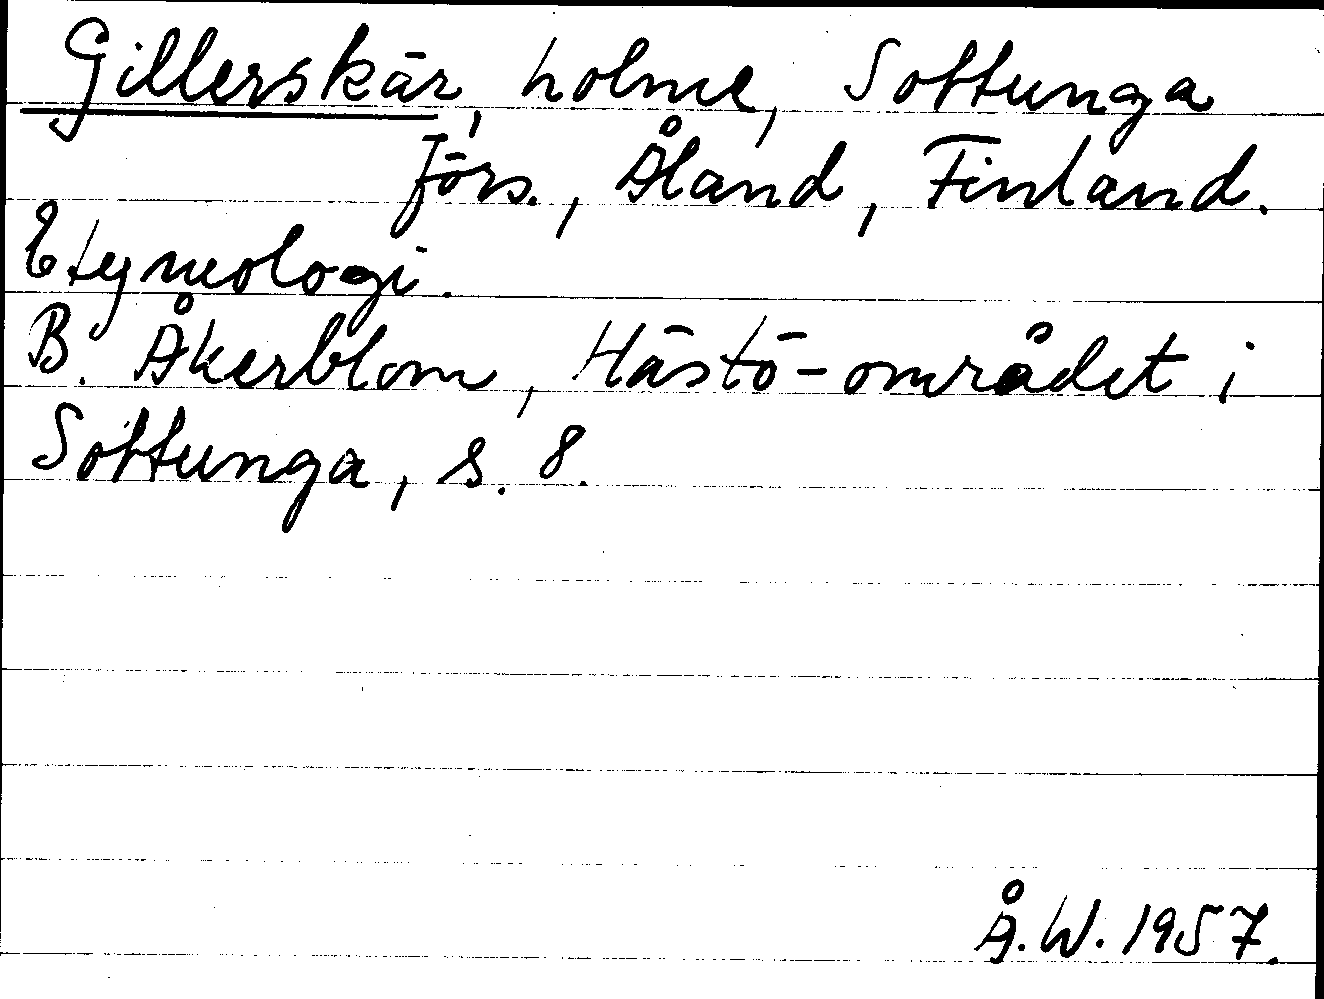 Gillerskär, holme, Sottunga
förs., Åland, Finland.
Etymologi.
B. Åkerblom, Hästö-området i
Sottunga, s. 8.
Å. W. 1957.